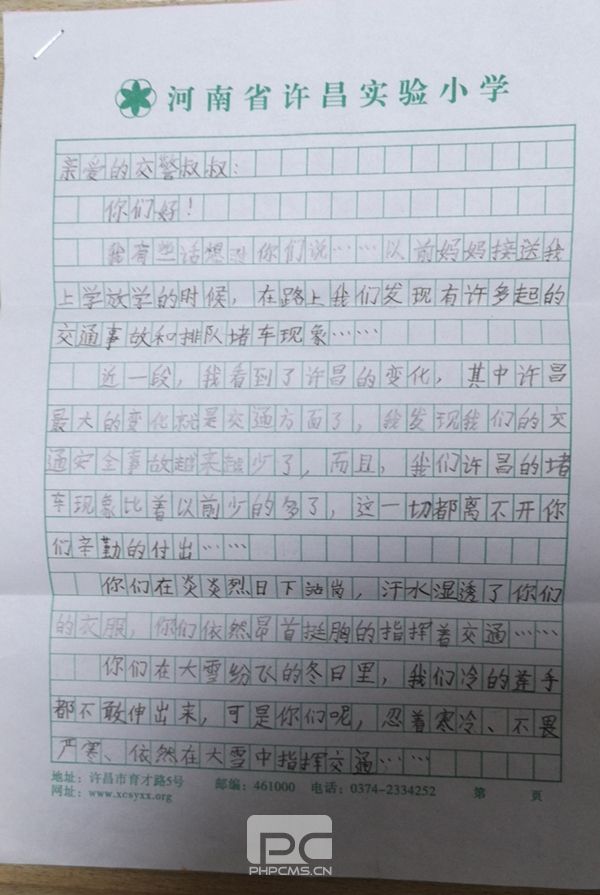 河南省许昌实验小学
亲爱的交警叔叔:
你们好!
我有些话想对你们说……以前妈妈接送我
上学放学的时候,在路上我们发现有许多起的
交通事故和排队堵车现象……
近一段,我看到了许昌的变化,其中许昌
最大的变化就是交通方面了,我发现我们的交
通安全事故越来越少了,而且,我们许昌的堵
车现象比着以前少的多了,这一切都离不开你
们辛勤的付出……
你们在炎炎烈日下站岗,汗水湿透了你们
的衣服,你们依然昂首挺胸的指挥着交通……
你们在大雪纷飞的冬日里,我们冷的连手
都不敢伸出来,可是你们呢,忍着寒冷、不畏
严寒、依然在大雪中指挥交通……
地址:许昌市育才路5号 邮编:461000 电话:0374-2334252 第 页
网址:www.xcsyxx.org
PC
PHPCMS.CN